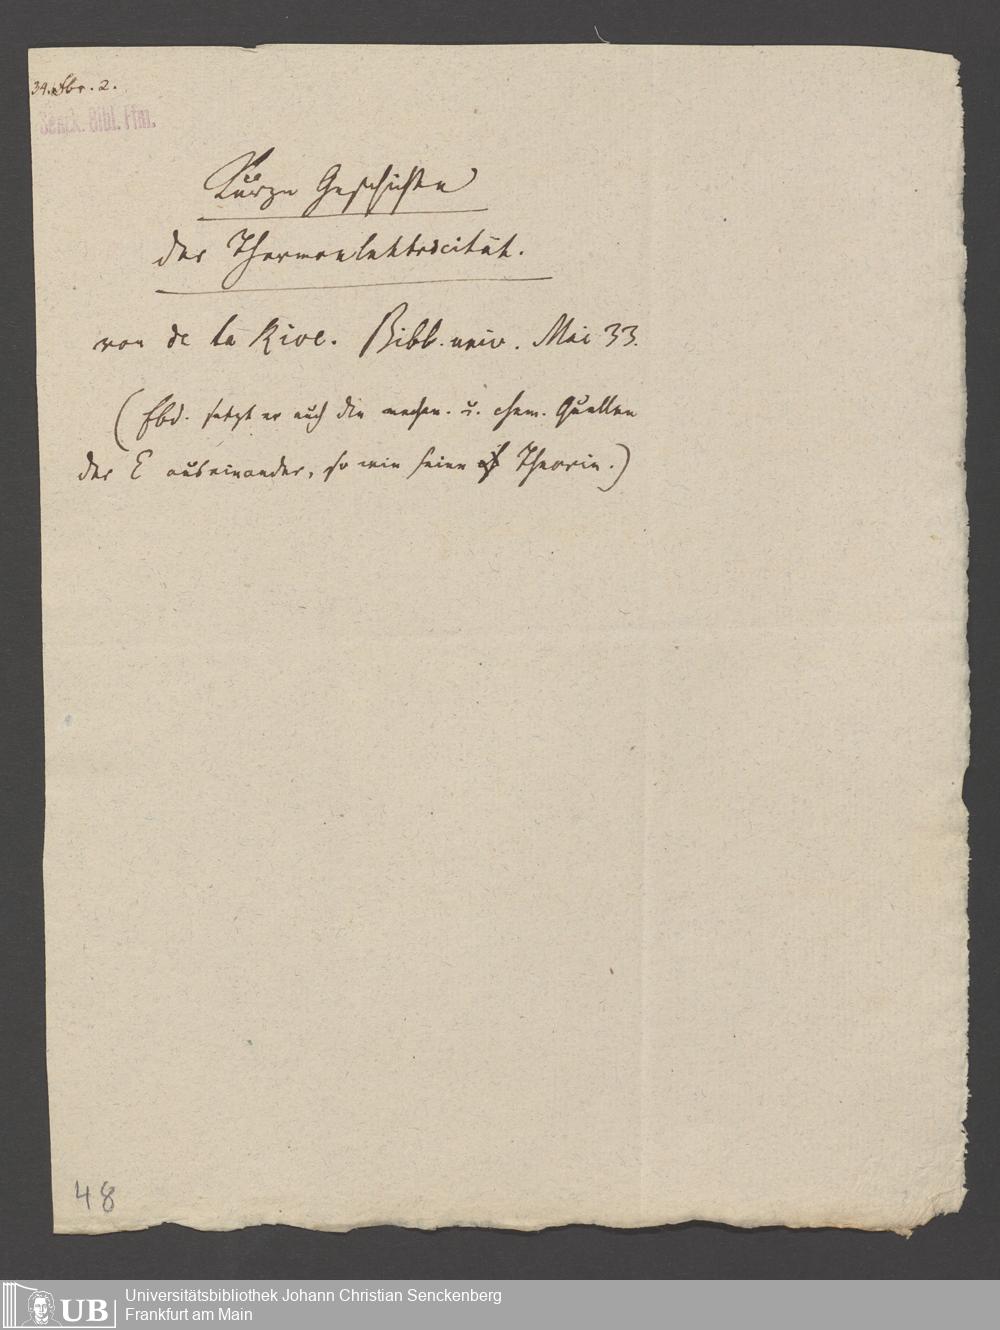 34. Fbr. 2.
Senck. Bibl. Ffm.
Kurze Geschichte
der Thermoelektricität.
von de la Rive. Bibl. univ. Mai 33.
(Ebd. setzt er auch die mechan. u. chem. Quellen
der E auseinander, so wie seine Theorie.)
48
UB
Universitätsbibliothek Johann Christian Senckenberg
Frankfurt am Main